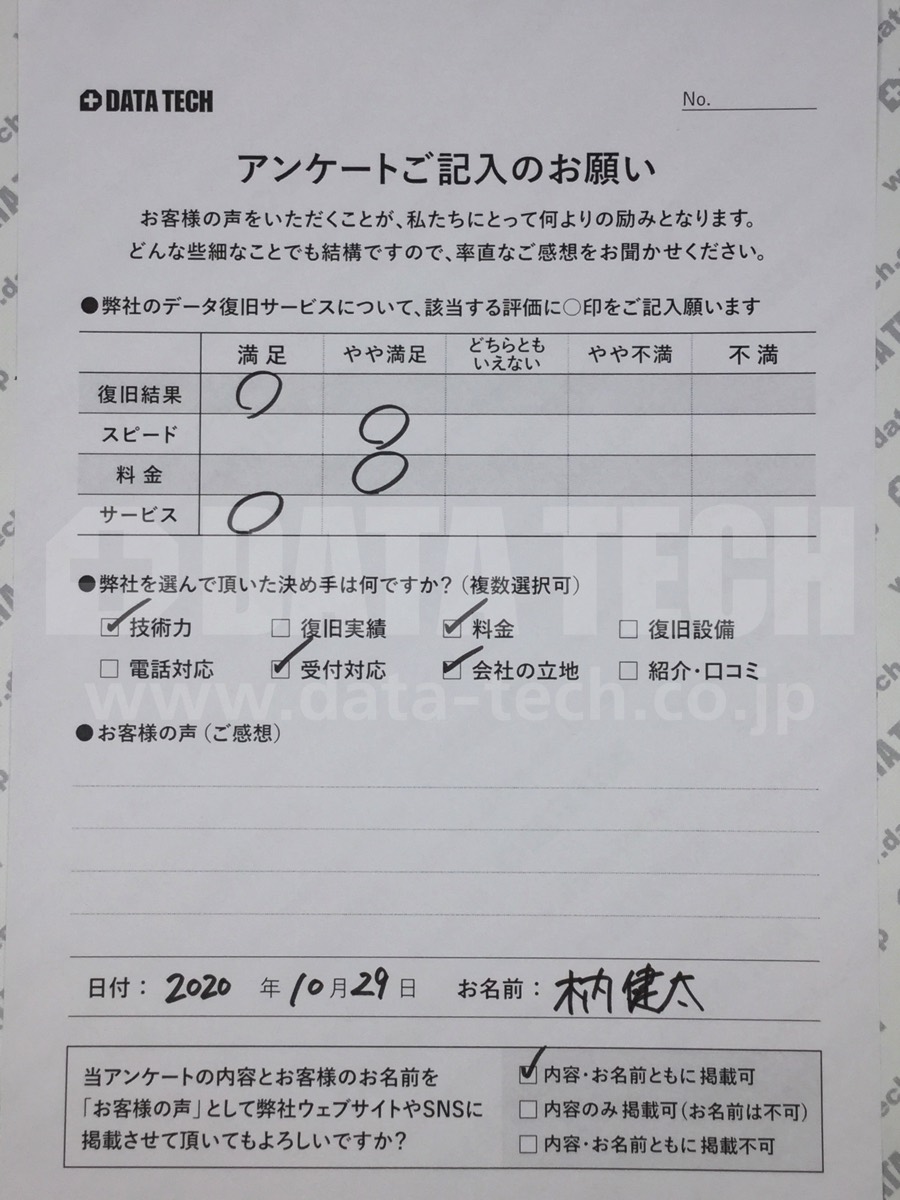 DATA TECH
No.
アンケートご記入のお願い
お客様の声をいただくことが、私たちにとって何よりの励みとなります。
どんな些細なことでも結構ですので、率直なご感想をお聞かせください。
●弊社のデータ復旧サービスについて、該当する評価に○印をご記入願います
満足 やや満足 どちらとも いえない やや不満 不満
復旧結果 ○
スピード ○
料金 ○
サービス ○
DATA TECH
●弊社を選んで頂いた決め手は何ですか？（複数選択可）
☑技術力 □復旧実績 ☑料金 □復旧設備
□電話対応 ☑受付対応 ☑会社の立地 □紹介・口コミ
www.data-tech.co.jp
●お客様の声（ご感想）
日付： 2020 年 10 月 29 日 お名前： 柄内健太
当アンケートの内容とお客様のお名前を
「お客様の声」として弊社ウェブサイトやSNSに
掲載させて頂いてもよろしいですか？
☑内容・お名前ともに掲載可
□内容のみ掲載可（お名前は不可）
□内容・お名前ともに掲載不可